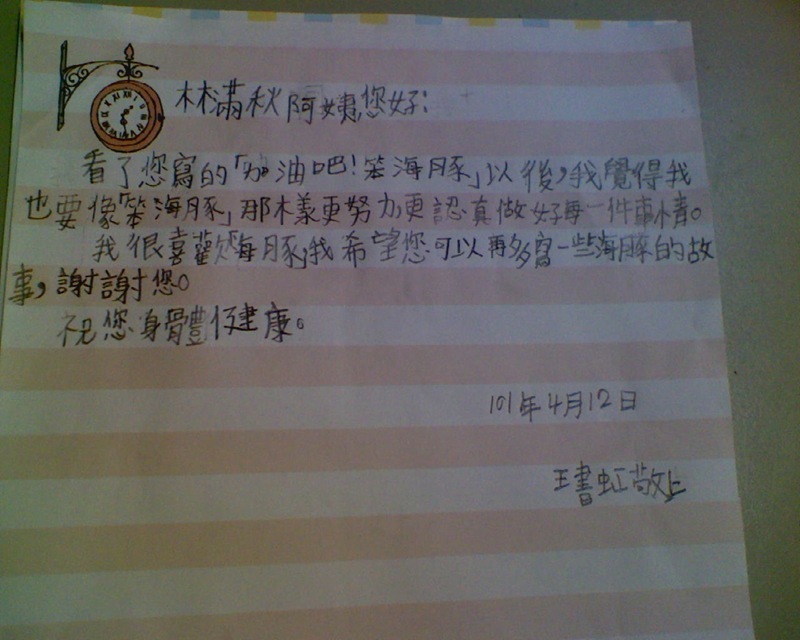 林滿秋阿姨,您好:
看了您寫的「加油吧!笨海豚」以後,我覺得我
也要像「笨海豚」那樣更努力更認真做好每一件事情。
我很喜歡「海豚」,我希望您可以再多寫一些海豚的故
事,謝謝您。
祝您身體健康。
101年4月12日
王書虹敬上